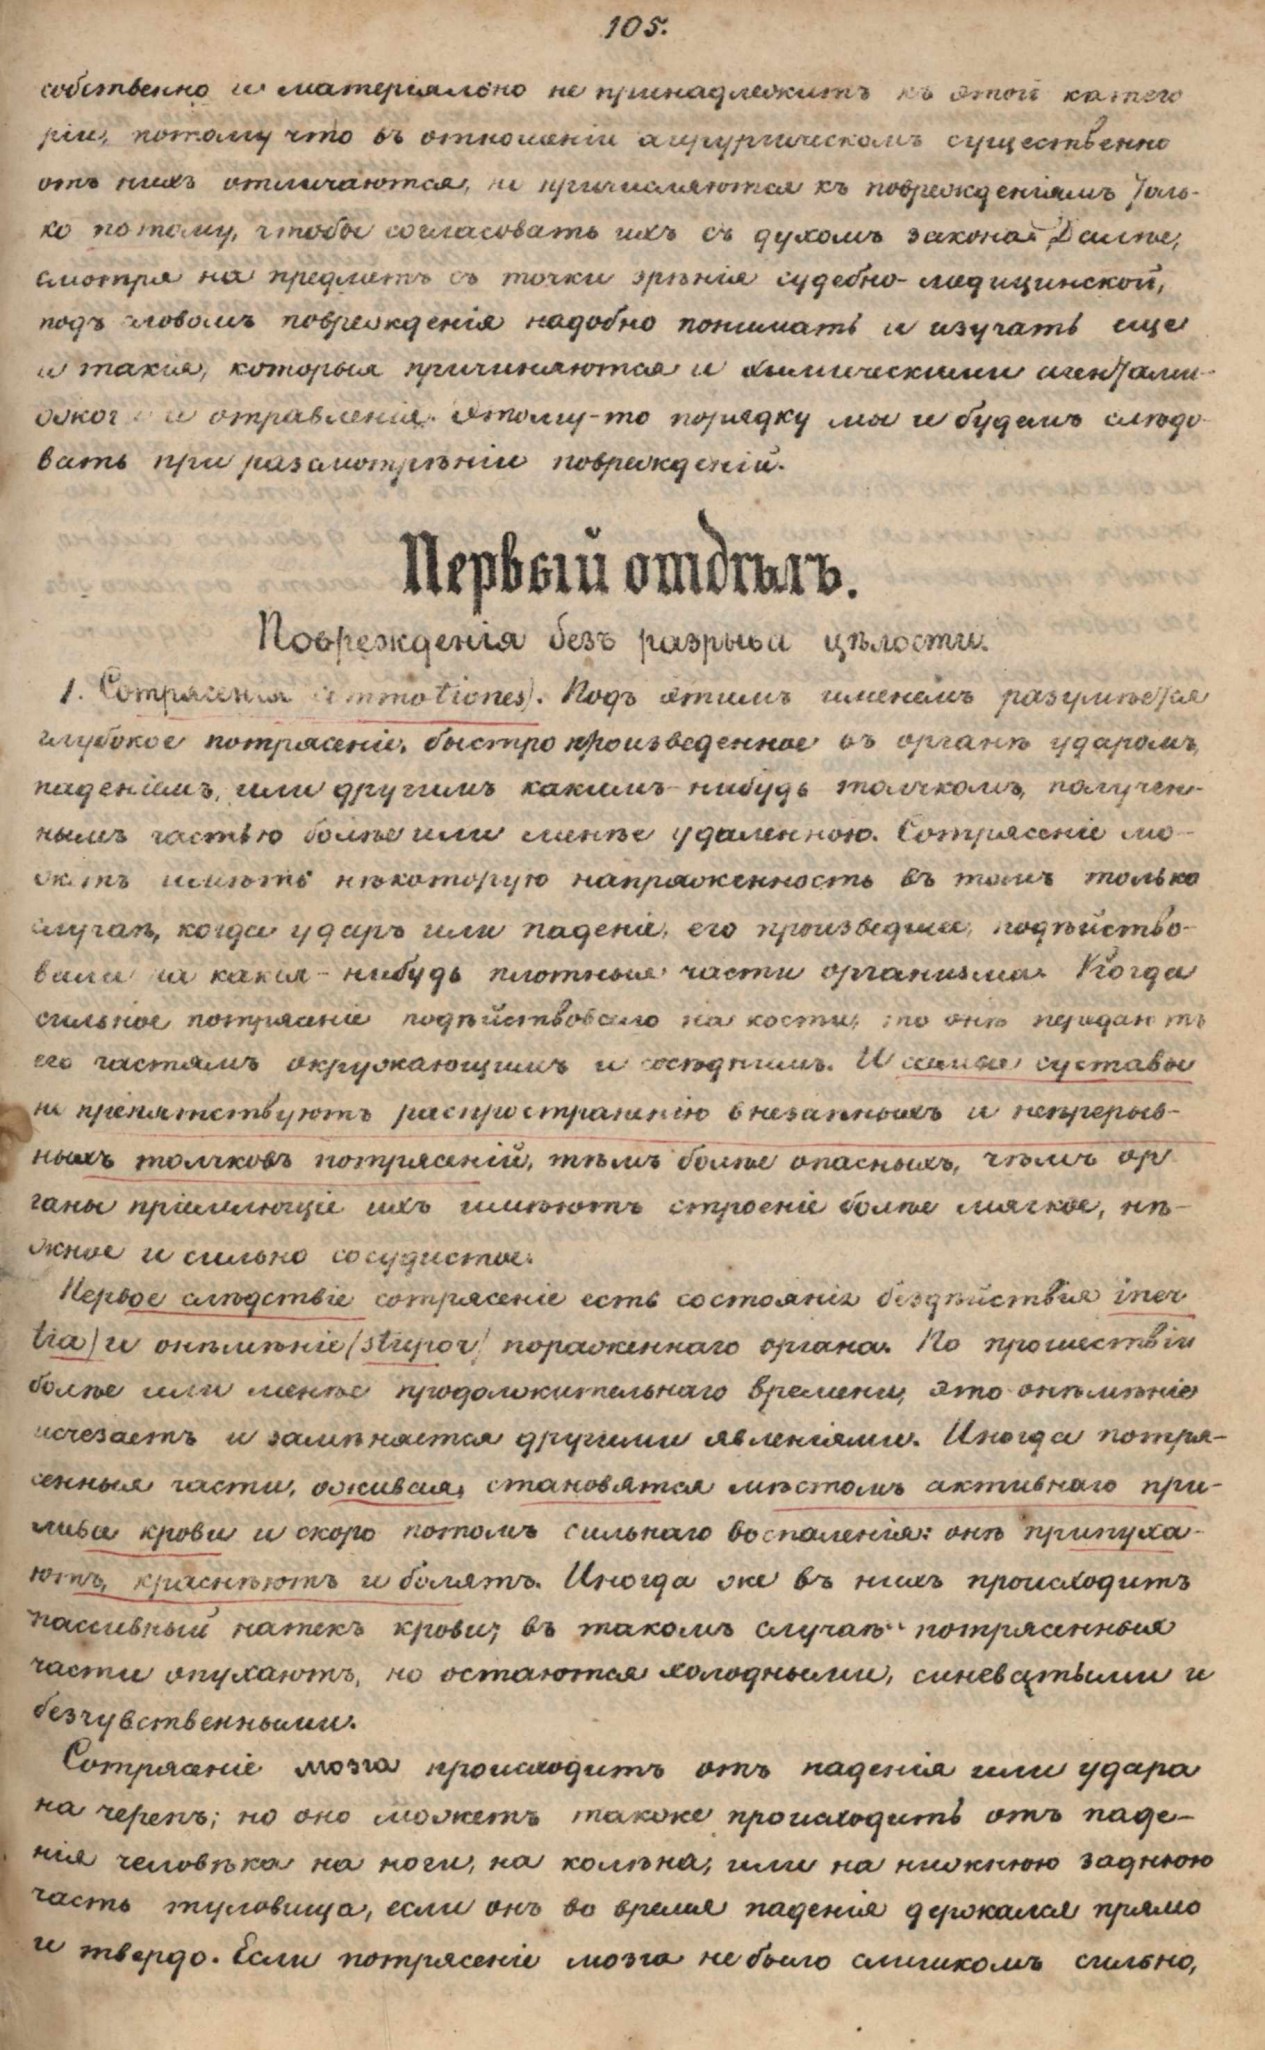 105.
собственно и матеріяльно не принадлежитъ къ этой катего
ріи, потому что въ отношеніи хирургическомъ существенно
отъ нихъ отличаются, и причисляются къ поврежденіямъ толь-
ко потому, чтобы согласовать ихъ съ духомъ закона. Далѣе,
смотря на предметъ съ точки зрѣнія судебно-медицинской,
подъ словомъ поврежденія надобно понимать и изучать еще
и такія, которыя причиняются и химическими агентами-
ожоги и отравленія. Этому-то порядку мы и будемъ слѣдо
вать при разсмотрѣніи поврежденій.
Первый отдѣлъ.
Поврежденія безъ разрыва цѣлости.
1. Сотрясенія (commotiones). Подъ этимъ именемъ разумѣется
глубокое потрясеніе, быстро произведенное въ органѣ ударомъ,
паденіемъ, или другимъ какимъ-нибудь толчкомъ, получен-
нымъ частью болѣе или менѣе удаленною. Сотрясеніе мо-
жетъ имѣть нѣкоторую напряженность въ томъ только
случаѣ, когда ударъ или паденіе, его произведшіе, подѣйство-
вали на какія-нибудь плотныя части организма. Когда
сильное потрясеніе подѣйствовало на кости, то онѣ передаютъ
его частямъ окружающимъ и сосѣднимъ. И самые суставы
не препятствуютъ распространенію внезапныхъ и непрерыв-
ныхъ толчковъ потрясеній, тѣмъ болѣе опасныхъ, чѣмъ ор
ганы пріемлющіе ихъ имѣютъ строеніе болѣе мягкое, нѣ-
жное и сильно сосудистое.
Первое слѣдствіе сотрясеніе есть состояніе бездѣйствія iner
tia) и онѣмѣніе (stupor) пораженнаго органа. По прошествіи
болѣе или менѣе продолжительнаго времени, это онѣмѣніе
исчезаетъ и замѣняется другими явленіями. Иногда потря-
сенныя части, оживая, становятся мѣстомъ активнаго при-
лива крови и скоро потомъ сильнаго воспаленія: онѣ припуха-
ютъ, краснѣютъ и болятъ. Иногда же въ нихъ происходитъ
пассивный натекъ крови; въ такомъ случаѣ потрясенныя
части опухаютъ, но остаются холодными, синеватыми и
безчувственными.
Сотрясеніе мозга происходитъ отъ паденія или удара
на черепъ; но оно можетъ также происходить отъ паде-
нія человѣка на ноги, на колѣна, или на нижнюю заднюю
часть туловища, если онъ во время паденія держался прямо
и твердо. Если потрясеніе мозга не было слишкомъ сильно,